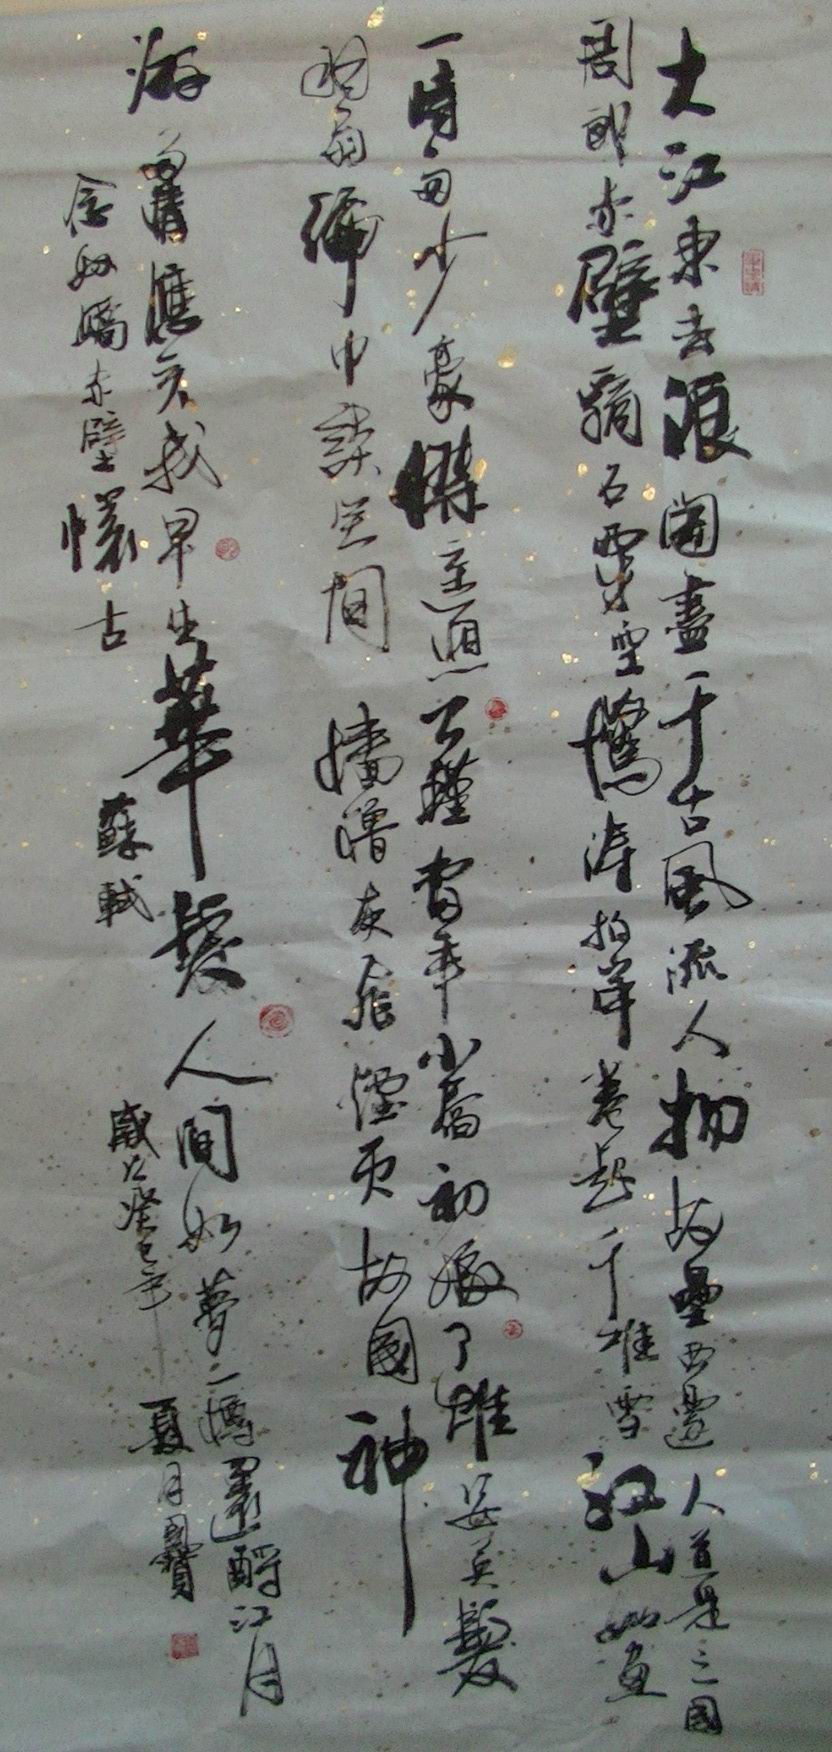 大江東去浪淘盡千古風流人物故壘西邊人道是三國
周郎赤壁亂石穿空驚濤拍岸卷起千堆雪江山如畫
一時多少豪傑遙想公瑾當年小喬初嫁了雄姿英發
羽扇綸巾談笑間檣櫓灰飛煙滅故國神
游多情應笑我早生華髮人間如夢一樽還酹江月
念奴嬌赤壁懷古
蘇軾
歲次癸巳年
夏月國寶